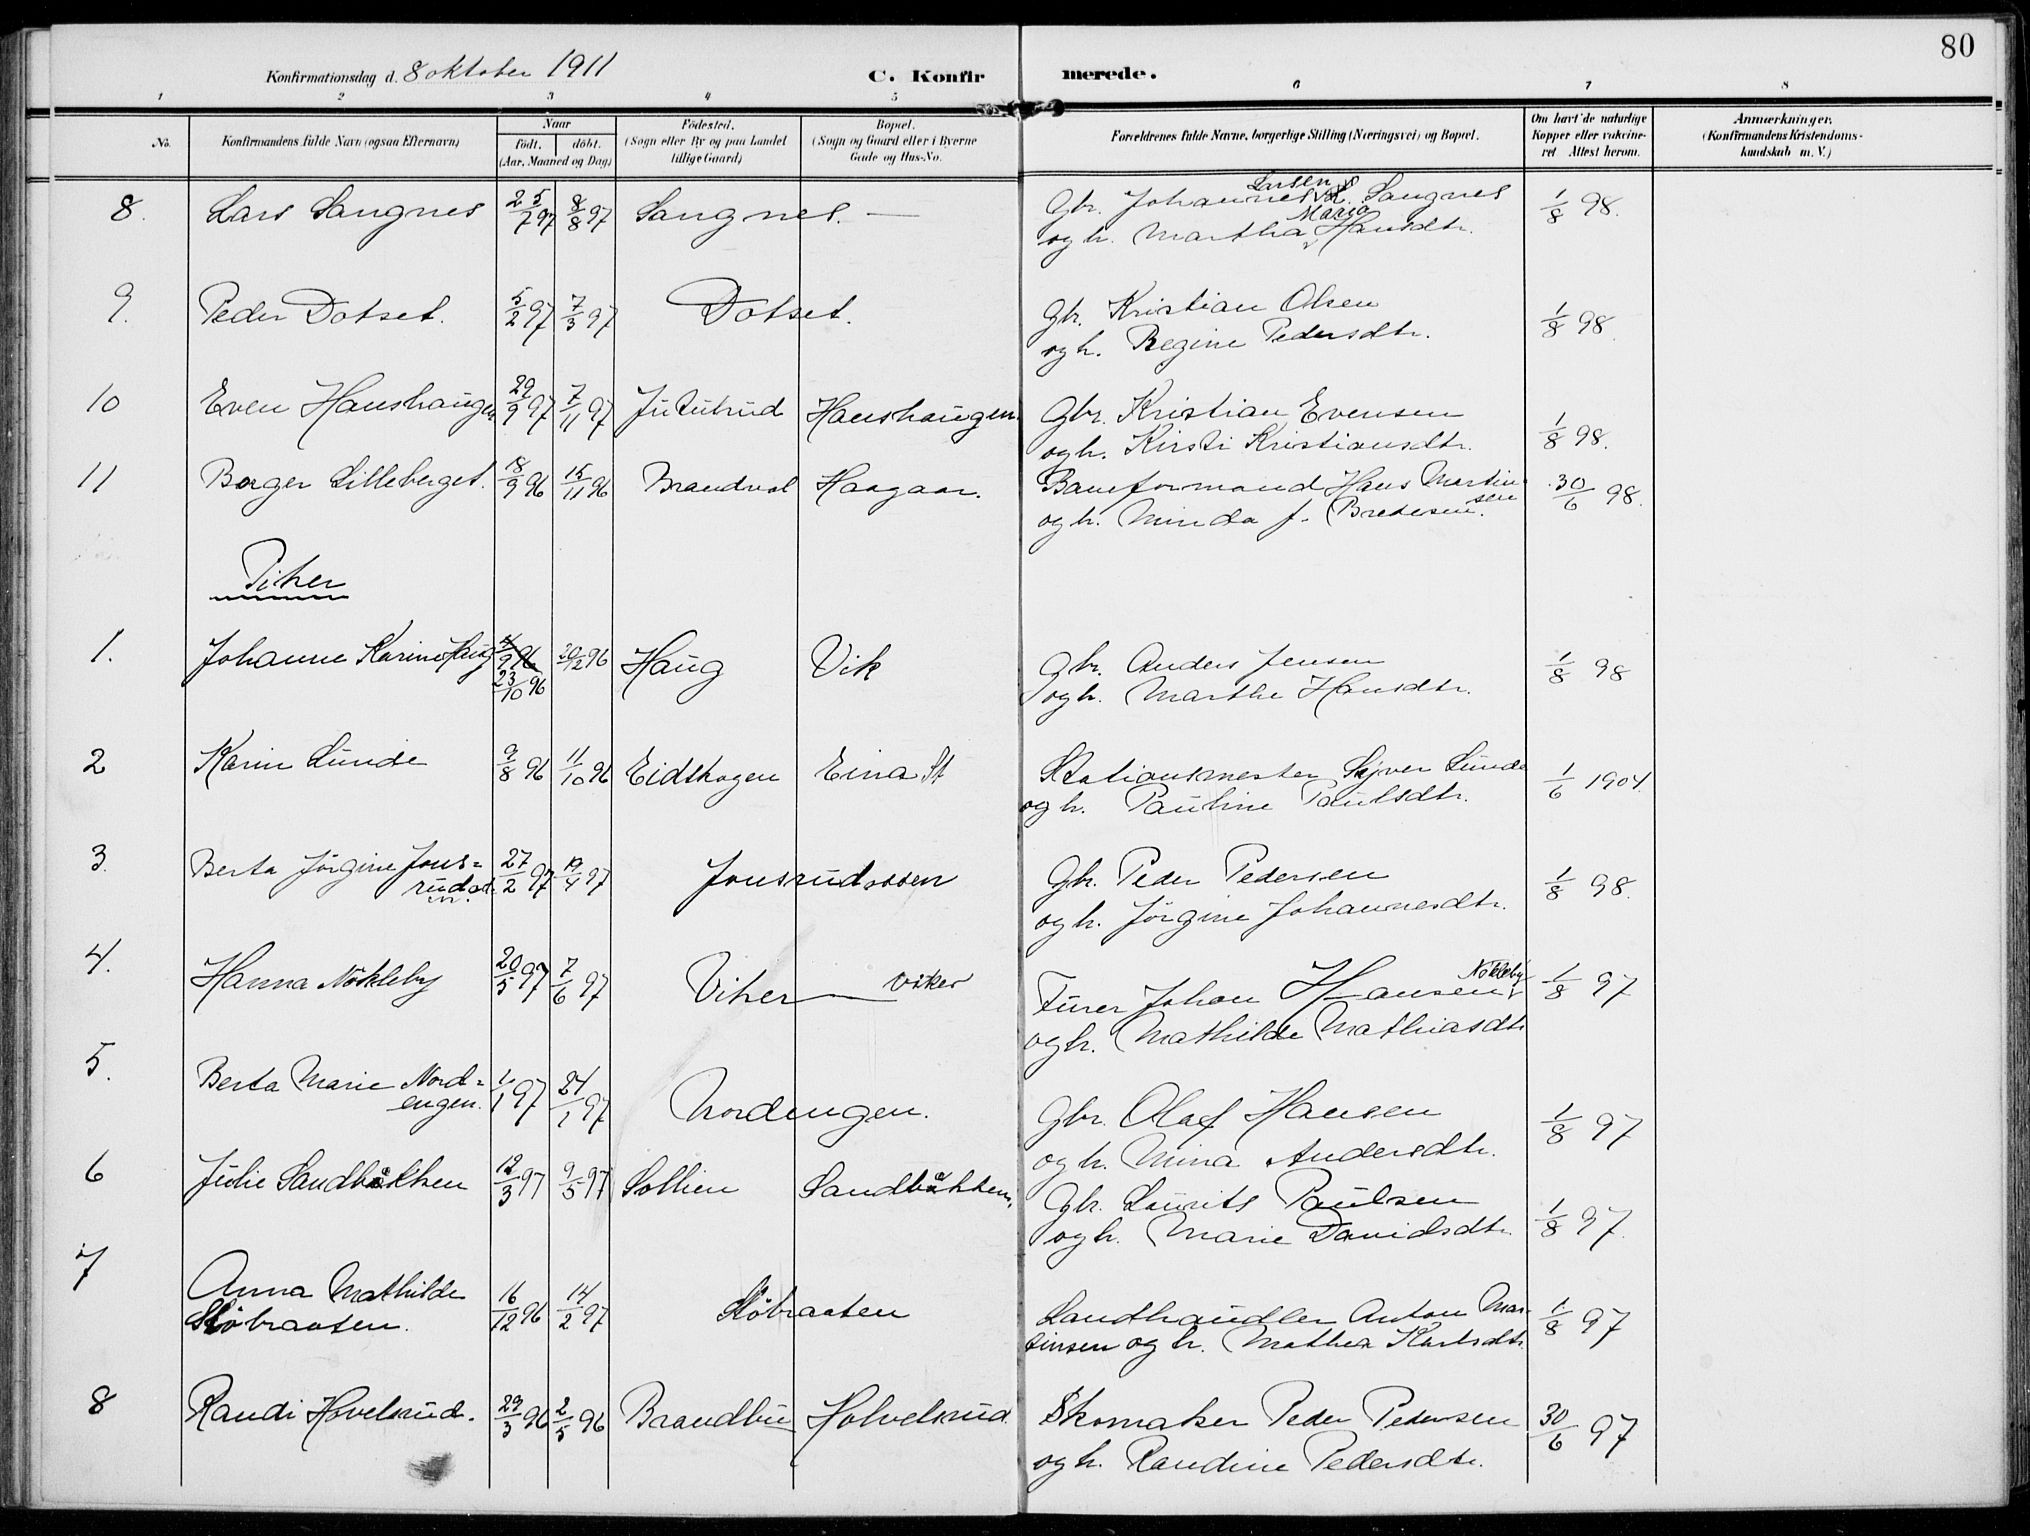 80
Konfirmationsdag d. 8 oktober 1911 C. Konfirmerede.
1 2 3 4 5 6 7 8
No. Konfirmandens fulde Navn (ogsaa Efternavn) Naar födt. döbt. (Aar, Maaned og Dag) Födested. (Sogn eller By og paa Landet tillige Gaard) Bopæl. (Sogn og Gaard eller i Byerne Gade og Hus-No. Forældrenes fulde Navne, borgerlige Stilling (Næringsvei) og Bopæl. Om havt de naturlige Kopper eller vakcineret Attest herom. Anmærkninger. (Konfirmandens Kristendomskundskab m. V.)
8. Lars Sangnes 25/7 97 8/8 97 Sangnes. — Gbr. Johannes Larsen Sangnes 1/8 98.
og h. Martha Maria Hansdtr.
9. Peder Dotset. 5/2 97 7/3 97 Dotset. Gbr. Kristian Olsen 1/8 98.
og h. Regine Pedersdtr.
10 Even Hanshaugen 29/9 97 7/11 97 Jututrud Hanshaugen. Gbr. Kristian Evensen 1/8 98.
og h. Kirsti Kristiansdtr.
11 Borger Lilleberget. 18/9 96 15/11 96 Brandval Haagaar. Baneformand Hans Martinsen 30/6 98.
og h. Minda f. Bredesen.
Piker
1. Johanne Karine Haug 9 96 20/12 96 Haug Vik Gbr. Anders Jensen 1/8 98
23/10 96 og h. Marthe Hansdtr.
2 Karin Lunde 9/8 96 11/10 96 Eidskogen Eina St Stationsmester Syver Lunde 1/6 1904.
og h. Pauline Paulsdtr.
3. Berta Jörgine Jons= 27/2 97 19/4 97 Jonsrudssen Gbr. Peder Pedersen 1/8 98.
og h. Jörgine Johannesdtr.
4. Hanna Nökleby 20/5 97 7/6 97 Viker — Viker Furer Johan Hansen Nökleby 1/8 97
og h. Mathilde Mathiasdtr
5. Berta Marie Nord= 1/1 97 24/1 97 Nordengen. Gbr. Olaf Hansen 1/8 97
engen. og h. Mina Andersdtr.
6 Julie Sandbakken 12/3 97 9/5 97 Sollien Sandbakken. Gbr. Laurits Paulsen 1/8 97.
og h. Marie Davidsdtr.
7 Anna Mathilde 16/12 96 14/2 97 Stöbraaten Landhandler Anton Mar= 1/8 97
Stöbraaten. tinsen og h. Mathea Karlsdtr.
8 Randi Hovelsrud. 29/3 96 2/5 96 Brandbu Holvelsrud. Skomaker Peder Pedersen 30/6 97
og h. Randine Pedersdtr.